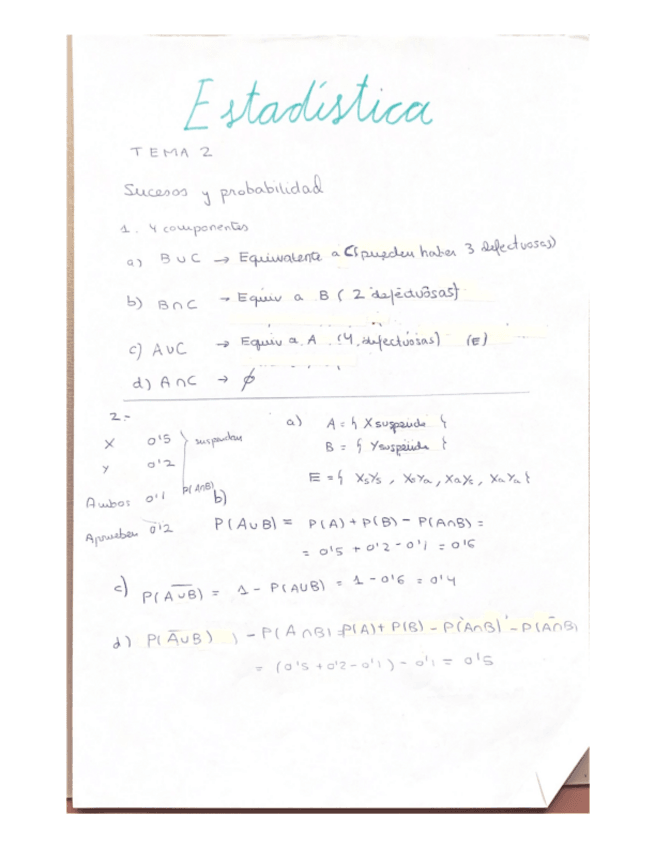 Estadística
TEMA 2
Sucesos y probabilidad
1. 4 componentes
a) B∪C → Equivalente a C (pueden haber 3 defectuosas)
b) B∩C → Equiv a B ( 2 defectuosas}
c) A∪C → Equiv a A (4 defectuosas) (E)
d) A∩C → ∅
2.-
X 0'5 } suspendan
Y 0'2
Ambos 0'1 P(A∩B)
Aprueben 0'2
a) A = { X suspende }
B = { Y suspende }
E = { XsYs, XsYa, XaYs, XaYa }
b)
P(A∪B) = P(A) + P(B) - P(A∩B) =
= 0'5 + 0'2 - 0'1 = 0'6
c) P(A̅∪̅B̅) = 1 - P(A∪B) = 1 - 0'6 = 0'4
d) P(A̅∪B) ) - P(A∩B) = P(A) + P(B) - P(A∩B) - P(A∩B)
= (0'5 + 0'2 - 0'1) - 0'1 = 0'5